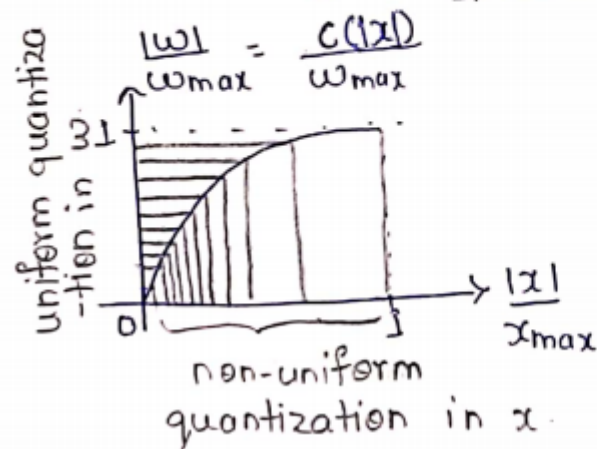 |ω|/ωmax = C(|x|)/ωmax
uniform quantiza
-tion in ω
1
0
1
|x|/xmax
non-uniform
quantization in x